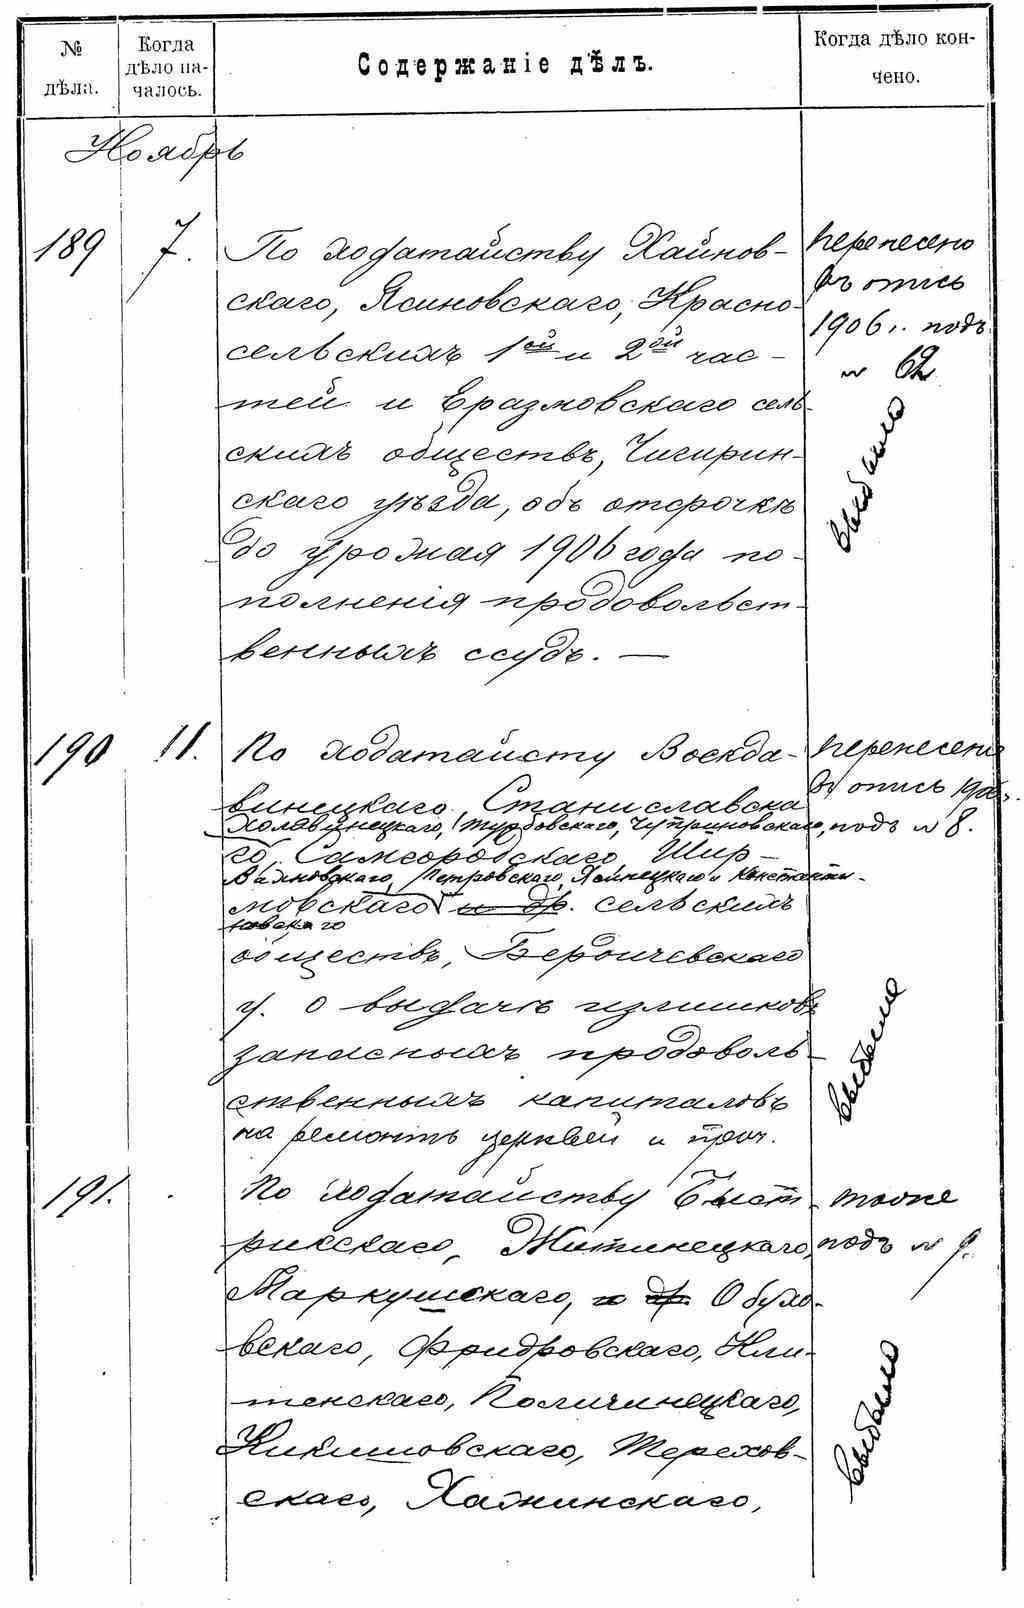 № дѣла.
Когда дѣло началось.
Содержаніе дѣлъ.
Когда дѣло кончено.
Ноябрь
189
7.
По ходатайству Хайнов-
скаго, Ясиновскаго, Красно-
сельскихъ 1ой и 2ой час-
тей и Еразмовскаго сель-
скихъ обществъ, Чигирин-
скаго уѣзда, объ отсрочкѣ
до урожая 1906 года по-
полненія продовольст-
венныхъ ссудъ. —
перенесено
въ опись
1906 г. подъ
№ 62
выбыло
190
11.
По ходатайсту Воскда-
винецкаго, Станиславска
Холявинецкаго, Турбовскаго, Чуприновскаго,
го, Самгородскаго, Шир-
Петровскаго, Яснецкаго и Константи-
мовскаго и др. сельскихъ
новскаго
обществъ, Бердичевскаго
у. о выдачѣ излишковъ
запасныхъ продоволь-
ственныхъ капиталовъ
на ремонтъ церквей и проч.
перенесено
въ опись 1906 г.
подъ № 8.
выбыло
191.
По ходатайству Быст-
рикскаго, Житинецкаго,
Маркушскаго, и др. Обухо-
вскаго, Фридровскаго, Кли-
тенскаго, Поличинецкаго,
Никишовскаго, Терехов-
скаго, Хажинскаго,
тоже
подъ № 9.
выбыло